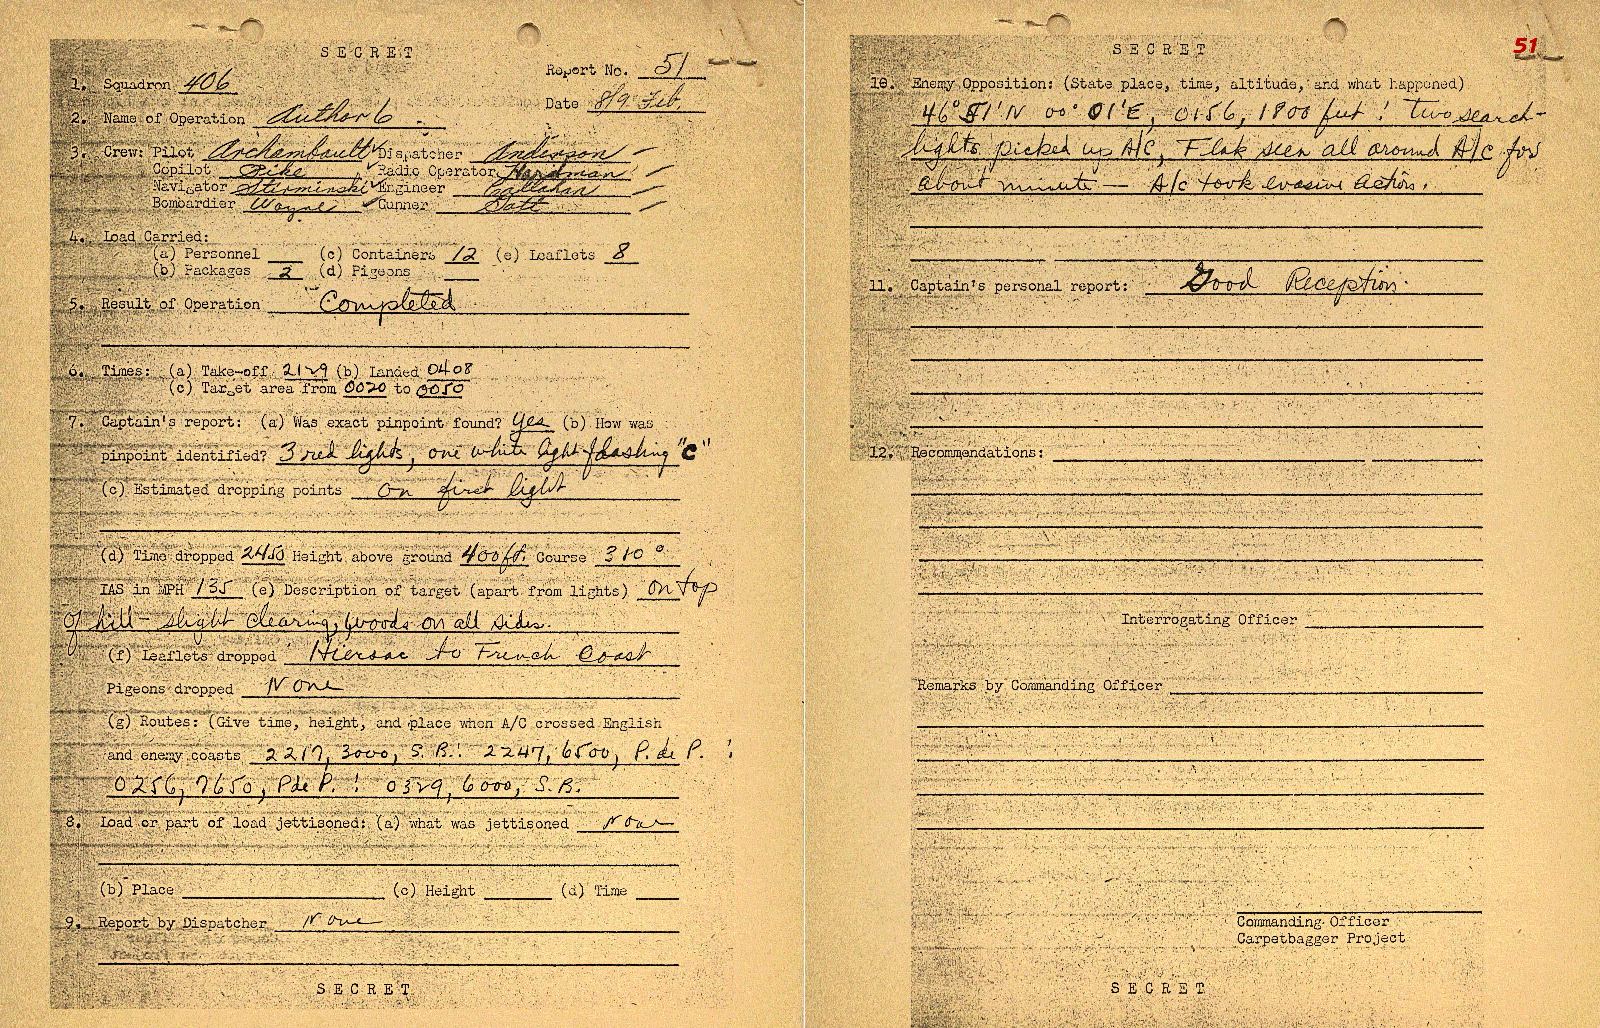 SECRET
Report No. 51
1. Squadron 406
Date 8/9 Feb.
2. Name of Operation Author 6
3. Crew: Pilot Archambault Dispatcher Anderson
Copilot Pike Radio Operator Hardman
Navigator Sterminski Engineer Callahan
Bombardier Wayne Gunner
4. Load Carried:
(a) Personnel (c) Containers 12 (e) Leaflets 8
(b) Packages 2 (d) Pigeons
5. Result of Operation Completed
6. Times: (a) Take-off 2129 (b) Landed 0408
(c) Target area from 0020 to 0050
7. Captain's report: (a) Was exact pinpoint found? Yes (b) How was
pinpoint identified? 3 red lights, one white light flashing "C"
(c) Estimated dropping points on first light
(d) Time dropped 2450 Height above ground 400 ft. Course 310°
IAS in MPH 135 (e) Description of target (apart from lights) on top
of hill - slight clearing, woods on all sides.
(f) Leaflets dropped Hiersac to French Coast
Pigeons dropped None
(g) Routes: (Give time, height, and place when A/C crossed English
and enemy coasts 2217, 3000, S.B.! 2247, 6500, P. de P. !
0256, 7650, P de P. ! 0329, 6000, S.B.
8. Load or part of load jettisoned: (a) what was jettisoned None
(b) Place (c) Height (d) Time
9. Report by Dispatcher None
SECRET
SECRET
51
10. Enemy Opposition: (State place, time, altitude, and what happened)
46° 51'N 00° 01'E, 0156, 1800 feet ! Two search-
lights picked up A/C, Flak seen all around A/C for
about minute — A/c took evasive action.
11. Captain's personal report: Good Reception.
12. Recommendations:
Interrogating Officer
Remarks by Commanding Officer
Commanding Officer
Carpetbagger Project
SECRET